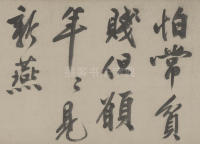 怕常貧
賤但願
年〻見
新燕